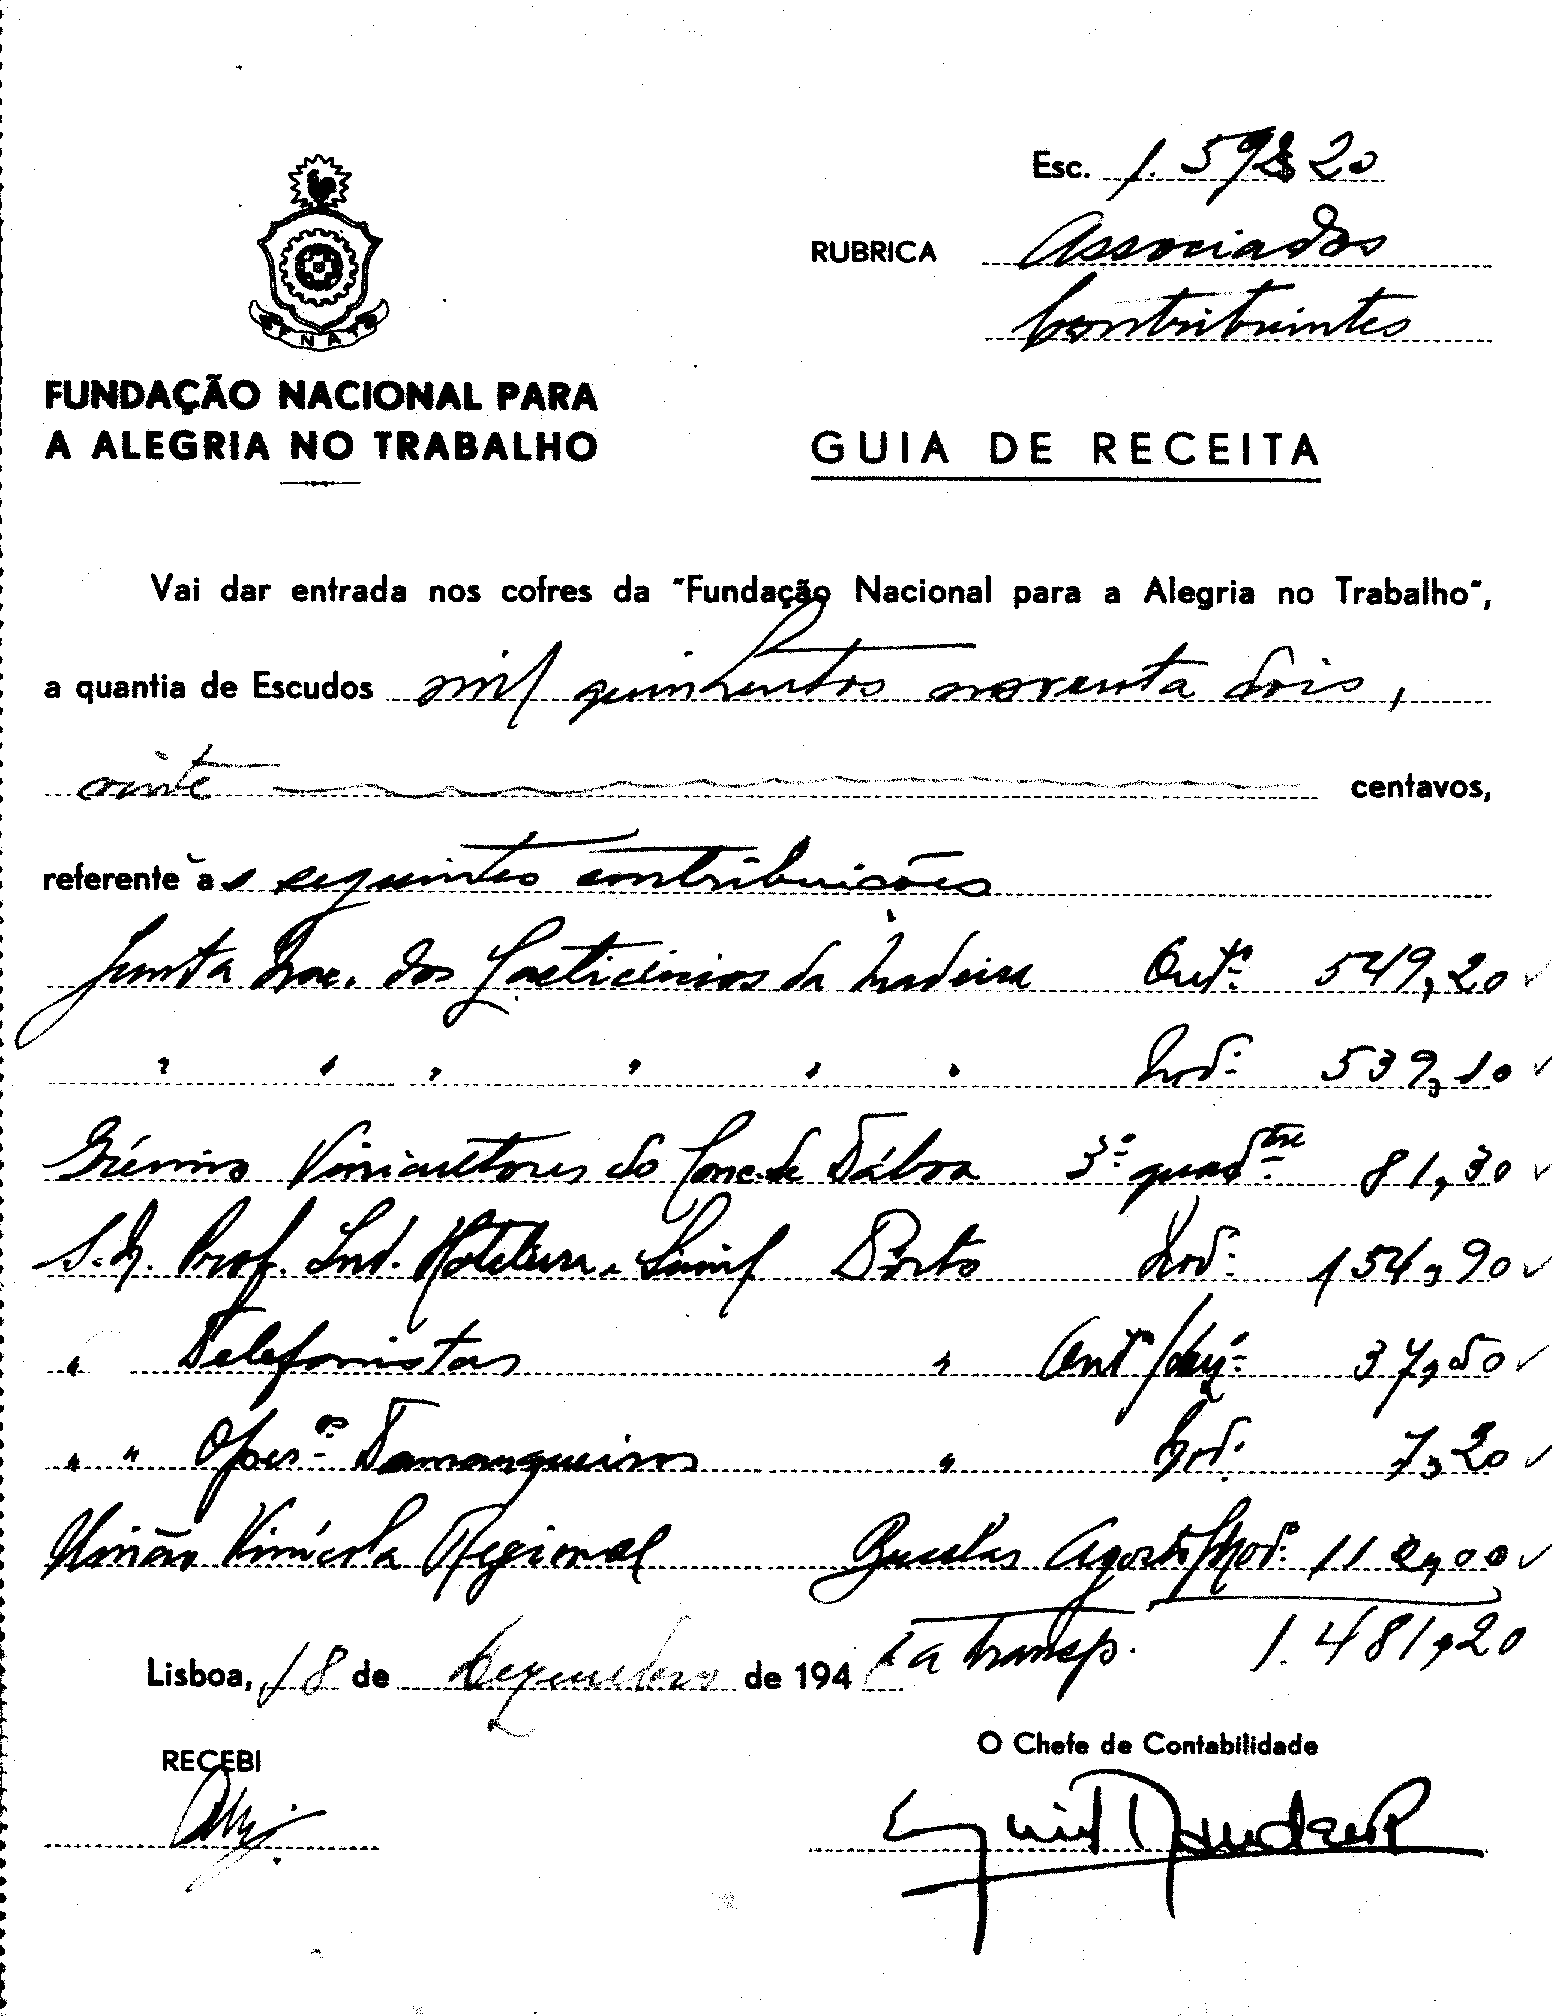 Esc. 1.592$20
RUBRICA Associados
Contribuintes
F N A T
FUNDAÇÃO NACIONAL PARA
A ALEGRIA NO TRABALHO
GUIA DE RECEITA
Vai dar entrada nos cofres da "Fundação Nacional para a Alegria no Trabalho",
a quantia de Escudos mil quinhentos noventa dois,
vinte centavos,
referente às seguintes contribuisões
Junta Nac. dos Lacticinios da Madeira Outº 549,20
" " " " " " Novº 539,10
Grémio Vinicultores do Conc. de Tábua 3º quadtre 81,30
S. N. Prof. Ind. Hoteleira e Simil Porto Novº 154,90
" Telefonistas " Outº/Dezº 37,50
" " Operºs Tamanqueiros " Novº 7,20
União Vinícola Regional Bucelas Agosto/Novº 112,00
a transp. 1.481,20
Lisboa, 18 de Dezembro de 194
RECEBI
O Chefe de Contabilidade